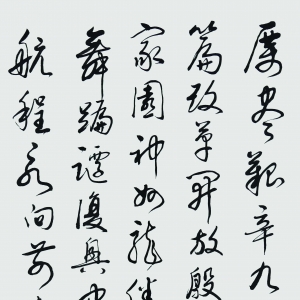 歷尽艱辛九
篇改革開放殷
家園神州龍騰
舞蹁躚復興中
航程永向前